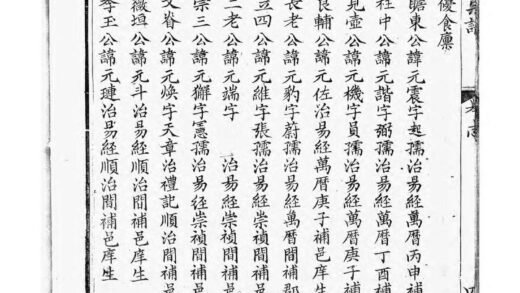 優食廩
瞻東公諱元震字起孺治易經萬曆丙申補
在中公諱元諧字弼孺治易經萬曆丁酉補
見壺公諱元機字員孺治易經萬曆庚子補
良輔公諱元佐治易經萬曆庚子補邑庠生
長老公諱元豹字蔚孺治易經萬曆間補郡
立四公諱元維字張孺治易經崇禎間補邑
二老公諱元端字 治易經崇禎間補邑
崇三公諱元獬字憲孺治易經崇禎間補邑
文眷公諱元煥字天章治禮記順治間補邑
薇垣公諱元斗治易經順治間補邑庠生
季玉公諱元璉治易經順治間補邑庠生